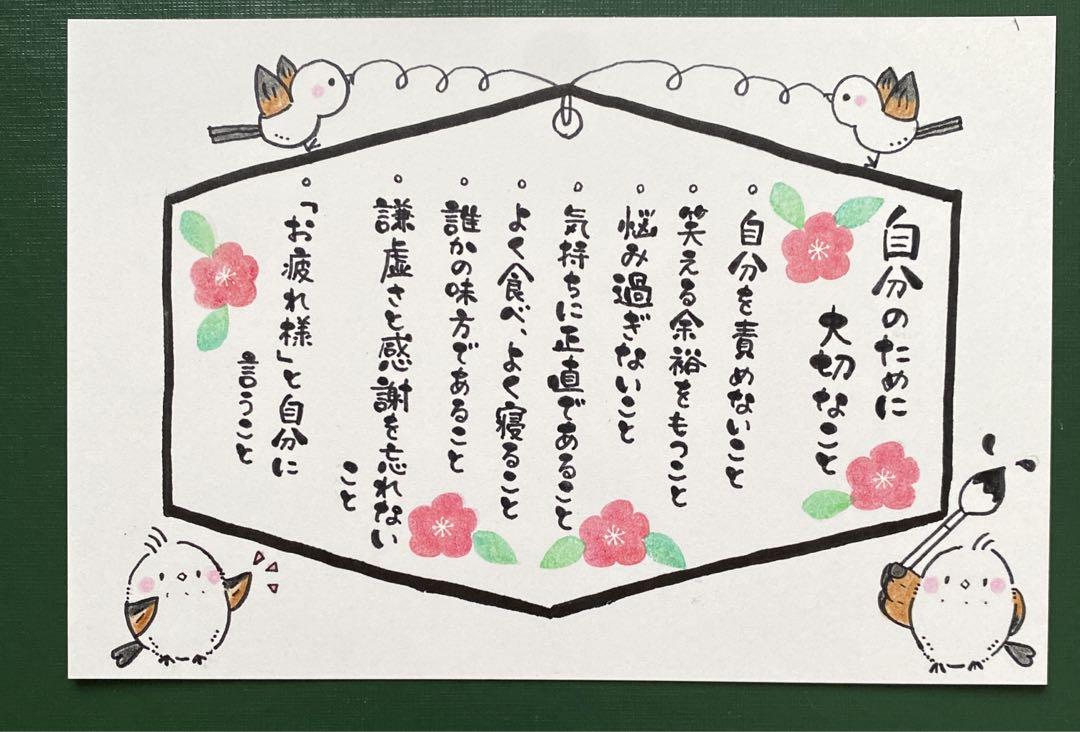 自分のために
大切なこと
・自分を責めないこと
・笑える余裕をもつこと
・悩み過ぎないこと
・気持ちに正直であること
・よく食べ、よく寝ること
・誰かの味方であること
・謙虚さと感謝を忘れない
こと
・「お疲れ様」と自分に
言うこと